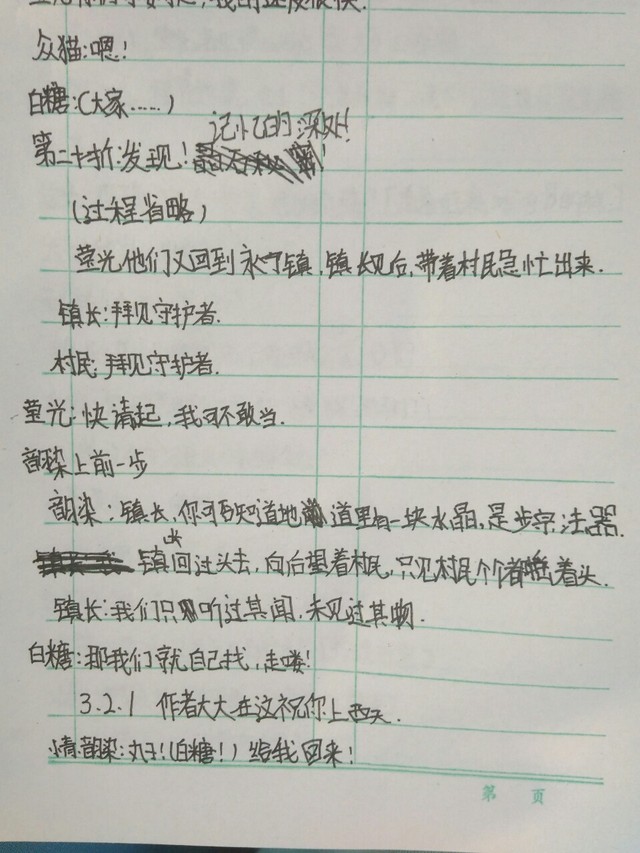 众猫:嗯!
白糖:(大家……)
记忆的深处!
第二十折:发现!
(过程省略)
莹光他们又回到永宁镇,镇长见后,带着村民急忙出来.
镇长:拜见守护者.
村民:拜见守护者.
莹光:快请起,我可不敢当.
韵染上前一步
韵染:镇长,你可否知道地道里有一块水晶,是步宗法器.
镇长回过头去,向后望着村民,只见村民个个都摇着头.
镇长:我们只听过其闻,未见过其物.
白糖:那我们就自己找,走喽!
3.2.1 作者大大在这祝你上西天.
情.韵染:丸子!(白糖!)给我回来!
第 页